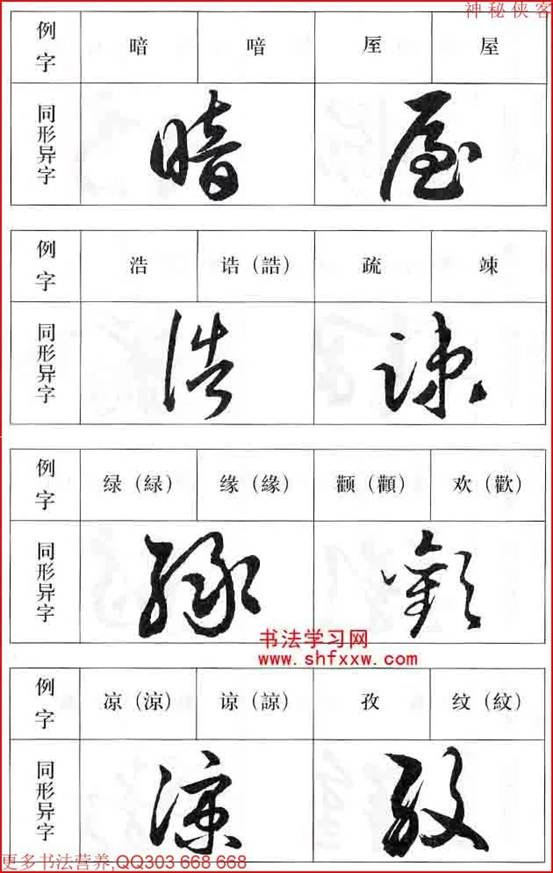 神秘侠客
例字 暗 喑 厔 屋
同形异字
例字 浩 诰（誥） 疏 竦
同形异字
例字 绿（緑） 缘（緣） 颧（顴） 欢（歡）
同形异字
书法学习网
www.shfxxw.com
例字 凉（涼） 谅（諒） 孜 纹（紋）
同形异字
更多书法营养,QQ303 668 668